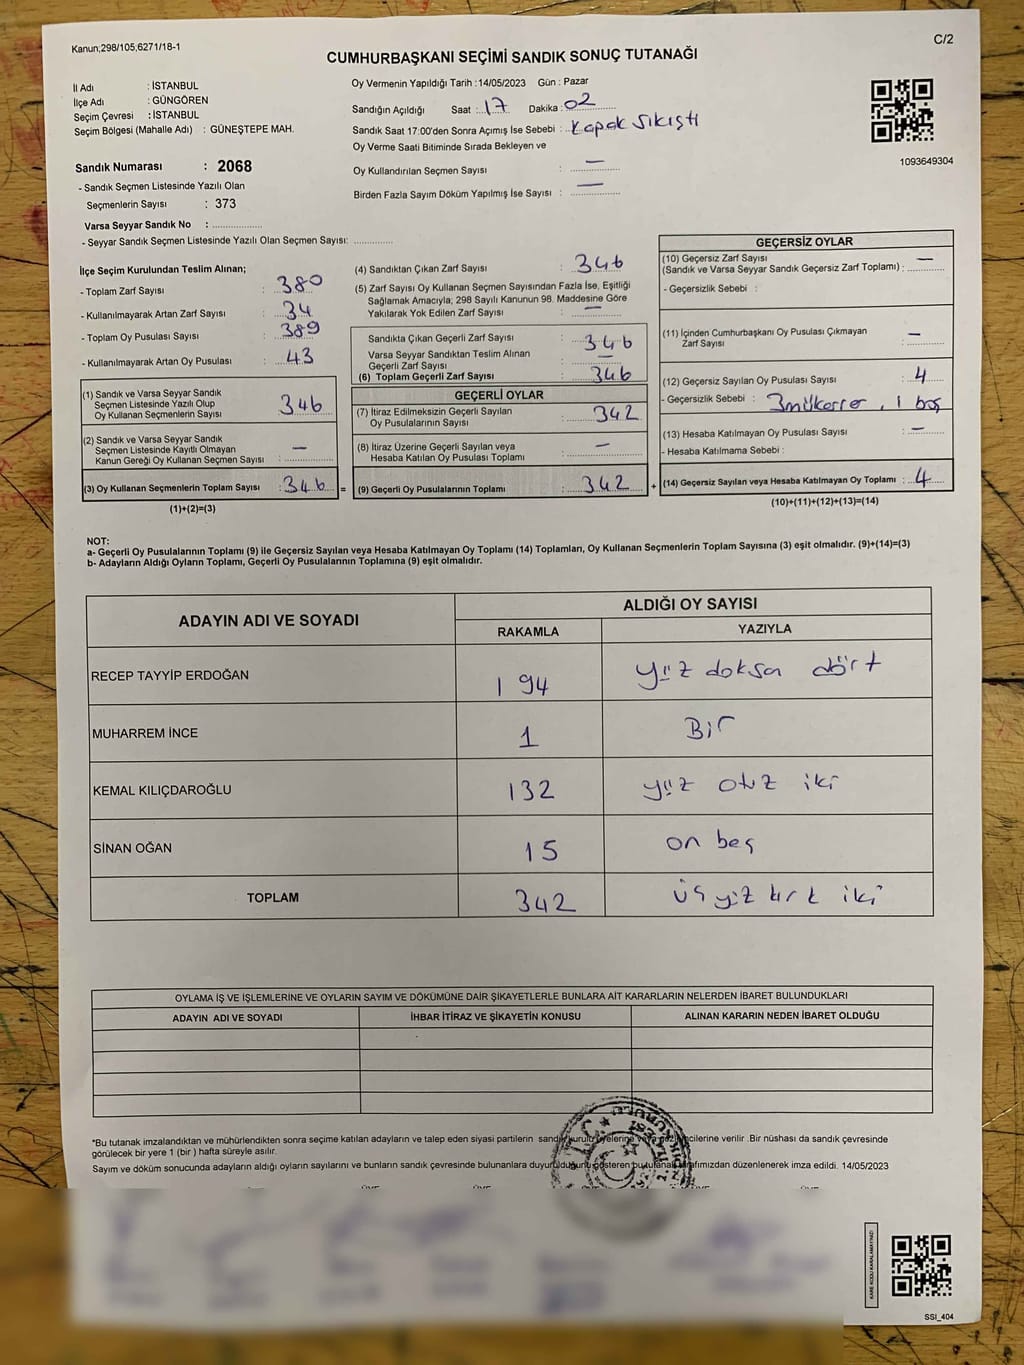 Kanun;298/105;6271/18-1
C/2
CUMHURBAŞKANI SEÇİMİ SANDIK SONUÇ TUTANAĞI
İl Adı : İSTANBUL
İlçe Adı : GÜNGÖREN
Seçim Çevresi : İSTANBUL
Seçim Bölgesi (Mahalle Adı) : GÜNEŞTEPE MAH.
Oy Vermenin Yapıldığı Tarih :14/05/2023 Gün : Pazar
Sandığın Açıldığı Saat : 17 Dakika : 02
Sandık Saat 17:00'den Sonra Açımış İse Sebebi : Kapak Sıkıştı
Oy Verme Saati Bitiminde Sırada Bekleyen ve
Oy Kullandırılan Seçmen Sayısı : —
Birden Fazla Sayım Döküm Yapılmış İse Sayısı : —
1093649304
Sandık Numarası : 2068
- Sandık Seçmen Listesinde Yazılı Olan
Seçmenlerin Sayısı : 373
Varsa Seyyar Sandık No : ................
- Seyyar Sandık Seçmen Listesinde Yazılı Olan Seçmen Sayısı: .............
İlçe Seçim Kurulundan Teslim Alınan;
- Toplam Zarf Sayısı : 380
- Kullanılmayarak Artan Zarf Sayısı : 34
- Toplam Oy Pusulası Sayısı : 389
- Kullanılmayarak Artan Oy Pusulası : 43
(1) Sandık ve Varsa Seyyar Sandık
Seçmen Listesinde Yazılı Olup
Oy Kullanan Seçmenlerin Sayısı : 346
(2) Sandık ve Varsa Seyyar Sandık
Seçmen Listesinde Kayıtlı Olmayan
Kanun Gereği Oy Kullanan Seçmen Sayısı : —
(3) Oy Kullanan Seçmenlerin Toplam Sayısı : 346 =
(1)+(2)=(3)
(4) Sandıktan Çıkan Zarf Sayısı : 346
(5) Zarf Sayısı Oy Kullanan Seçmen Sayısından Fazla İse, Eşitliği
Sağlamak Amacıyla, 298 Sayılı Kanunun 98. Maddesine Göre
Yakılarak Yok Edilen Zarf Sayısı : —
Sandıkta Çıkan Geçerli Zarf Sayısı : 346
Varsa Seyyar Sandıktan Teslim Alınan
Geçerli Zarf Sayısı : —
(6) Toplam Geçerli Zarf Sayısı : 346
GEÇERLİ OYLAR
(7) İtiraz Edilmeksizin Geçerli Sayılan
Oy Pusulalarının Sayısı : 342
(8) İtiraz Üzerine Geçerli Sayılan veya
Hesaba Katılan Oy Pusulası Toplamı : —
(9) Geçerli Oy Pusulalarının Toplamı : 342 +
GEÇERSİZ OYLAR
(10) Geçersiz Zarf Sayısı
(Sandık ve Varsa Seyyar Sandık Geçersiz Zarf Toplamı) : —
- Geçersizlik Sebebi :
(11) İçinden Cumhurbaşkanı Oy Pusulası Çıkmayan
Zarf Sayısı : —
(12) Geçersiz Sayılan Oy Pusulası Sayısı : 4
- Geçersizlik Sebebi : 3 mükerrer , 1 boş
(13) Hesaba Katılmayan Oy Pusulası Sayısı : —
- Hesaba Katılmama Sebebi :
(14) Geçersiz Sayılan veya Hesaba Katılmayan Oy Toplamı : 4
(10)+(11)+(12)+(13)=(14)
NOT:
a- Geçerli Oy Pusulalarının Toplamı (9) ile Geçersiz Sayılan veya Hesaba Katılmayan Oy Toplamı (14) Toplamları, Oy Kullanan Seçmenlerin Toplam Sayısına (3) eşit olmalıdır. (9)+(14)=(3)
b- Adayların Aldığı Oyların Toplamı, Geçerli Oy Pusulalarının Toplamına (9) eşit olmalıdır.
ADAYIN ADI VE SOYADI ALDIĞI OY SAYISI
RAKAMLA YAZIYLA
RECEP TAYYİP ERDOĞAN 194 yüz doksa dört
MUHARREM İNCE 1 Bir
KEMAL KILIÇDAROĞLU 132 yüz otuz iki
SİNAN OĞAN 15 on beş
TOPLAM 342 üç yüz kırk iki
OYLAMA İŞ VE İŞLEMLERİNE VE OYLARIN SAYIM VE DÖKÜMÜNE DAİR ŞİKAYETLERLE BUNLARA AİT KARARLARIN NELERDEN İBARET BULUNDUKLARI
ADAYIN ADI VE SOYADI İHBAR İTİRAZ VE ŞİKAYETİN KONUSU ALINAN KARARIN NEDEN İBARET OLDUĞU
*Bu tutanak imzalandıktan ve mühürlendikten sonra seçime katılan adayların ve talep eden siyasi partilerin sandık kurulu üyelerine veya cilerine verilir .Bir nüshası da sandık çevresinde
görülecek bir yere 1 (bir ) hafta süreyle asılır.
Sayım ve döküm sonucunda adayların aldığı oyların sayılarını ve bunların sandık çevresinde bulunanlara duyurulduğunu gösteren bu tutanak tarafımızdan düzenlenerek imza edildi. 14/05/2023
KARE KODU KARALAMAYINIZ!
SSI_404